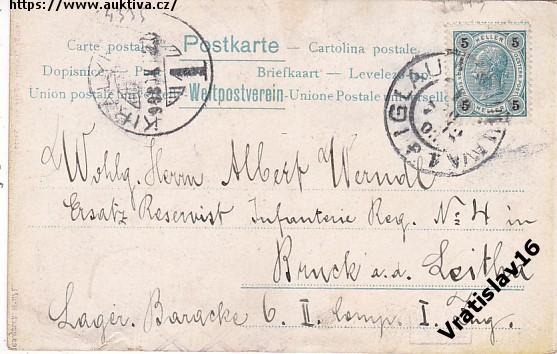 https://www.auktiva.cz/
Carte postale Postkarte – Cartolina postale
Dopisnice Briefkaart – Levelező-lap
Union postale universelle Weltpostverein - Unione Postale universelle
5 HELLER 5
5 5
IGLAU
Wohlg. Herrn Albert Werndl
Ersatz Reservist Infanterie Reg. No 4 in
Bruck a.d. Leitha
Lager. Baracke 6. II. Comp. I. Zug.
Vratislav16